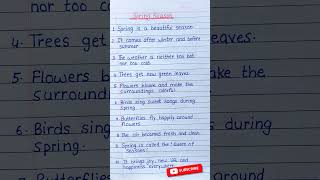 Spring Season
1. Spring is a beautiful season
2. It comes after winter and before
summer.
3. The weather is neither too hot
nor too cold.
4. Trees get new green leaves
5. Flowers bloom and make the
surroundings colorful
6. Birds sing sweet songs during
Spring.
7. Butterflies fly happily around
flowers.
8. The air becomes fresh and clean
9. Spring is called the "Queen of
Seasons".
It brings joy, new
happiness
SUBSCRIBE
nor too
4. Trees get
leaves.
5. Flowers
make the
6. Birds sing
during
Spring.